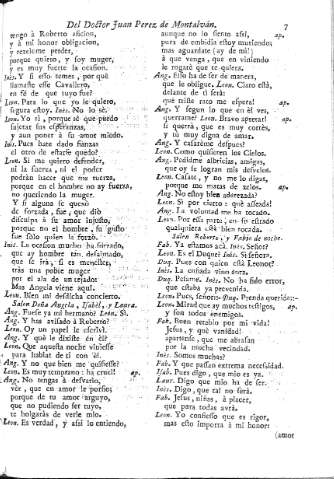 Del Doctor Juan Perez de Montalván.
7
tengo à Roberto aficion,
y à mi honor obligacion,
y rezeleme perder,
porque quiero, y soy muger,
y es muy fuerte la ocasion.
Inés. Y si esso temes, por què
llamaste esse Cavallero,
en fè de que tuyo fue?
Leon. Para lo que yo le quiero,
segura estoy. Inés. No lo sè.
Leon. Yo sì, porque sè que puedo
sujetar sus esperanzas,
y aun poner à su amor miedo.
Inés. Pues hace dado fianzas
el otro de estarse quedo?
Leon. Si me quiero defender,
ni la fuerza, ni el poder
podràn hacer que me tuerza,
porque en el hombre no ay fuerza,
no queriendo la muger.
Y si alguna se quexò
de forzada, fue, que diò
disculpa à su amor injusto,
porque no el hombre, su gusto
fue solo quien la forzò.
Inés. La ocasion mucho ha forzado,
que ay hombre tan desalmado,
que se irà, si es menester,
tràs una pobre muger
por el ala de un tejado:
Mas Angela viene aqui.
Leon. Bien mi desdicha concierto.
Salen Doña Angela, Isabèl, y Laura.
Ang. Fuese ya mi hermano? Leon. Sì.
Ang. Y has avisado à Roberto?
Leon. Oy un papel le escrivì.
Ang. Y què le dixiste en èl?
Leon. Que aquesta noche viniesse
para hablar de ti con èl.
Ang. Y no que bien me quisiesse?
Leon. Es muy temprano: ha cruel! ap.
Ang. No tengas à desvarìo,
vèr, que en amor le porfio;
porque de tu amor arguyo,
que no pudiendo ser tuyo,
te holgaràs de verle mio.
Leon. Es verdad, y assi lo entiendo,
aunque no lo siento assi, ap.
pues de embidia estoy muriendo;
mas aguardate (ay de mi!)
à que venga, que en viniendo
le rogarè que te quiera.
Ang. Esso ha de ser de manera,
que lo obligue. Leon. Claro està,
delante de ti serà:
què triste rato me espera! ap.
Ang. Y segun lo que en èl ves,
querràme? Leon. Bravo apretar! ap.
sì querrà, que es muy cortès,
y tù muy digna de amar.
Ang. Y casarème despues?
Leon. Como quisieren los Cielos.
Ang. Pedidme albricias, amigas,
que oy se logran mis desvelos.
Leon. Casate, y no me lo digas,
porque me matas de zelos. ap.
Ang. No estoy bien aderezada?
Leon. Sì por cierto: què assèada!
Ang. La voluntad me ha tocado.
Leon. Por essa parte, en su estado
qualquiera està bien tocada.
Salen Roberto, y Fabio de noche.
Fab. Ya estamos acà. Inés. Señor?
Leon. Es el Duque? Inés. Sì señora.
Duq. Pues con quien està Leonor?
Inés. La cuñada vino aora.
Duq. Pesame. Inés. No ha sido error,
que estaba ya prevenida.
Leon. Pues, señor? Duq. Prenda querida:-
Leon. Mirad que ay muchos testigos, ap.
y son todos enemigos.
Fab. Buen retablo por mi vida!
Jesus, y què vanidad!
apartense, que me abrasan
por la mucha vecindad.
Inés. Somos muchas?
Fab. Y que passan extrema necessidad.
Isab. Pues digo, que mio es ya.
Laur. Digo que mio ha de ser.
Inés. Digo, que tal no serà.
Fab. Jesus, niñas, à placer,
que para todas avrà.
Leon. Yo confiesso que es rigor,
mas esto importa à mi honor:
(amor